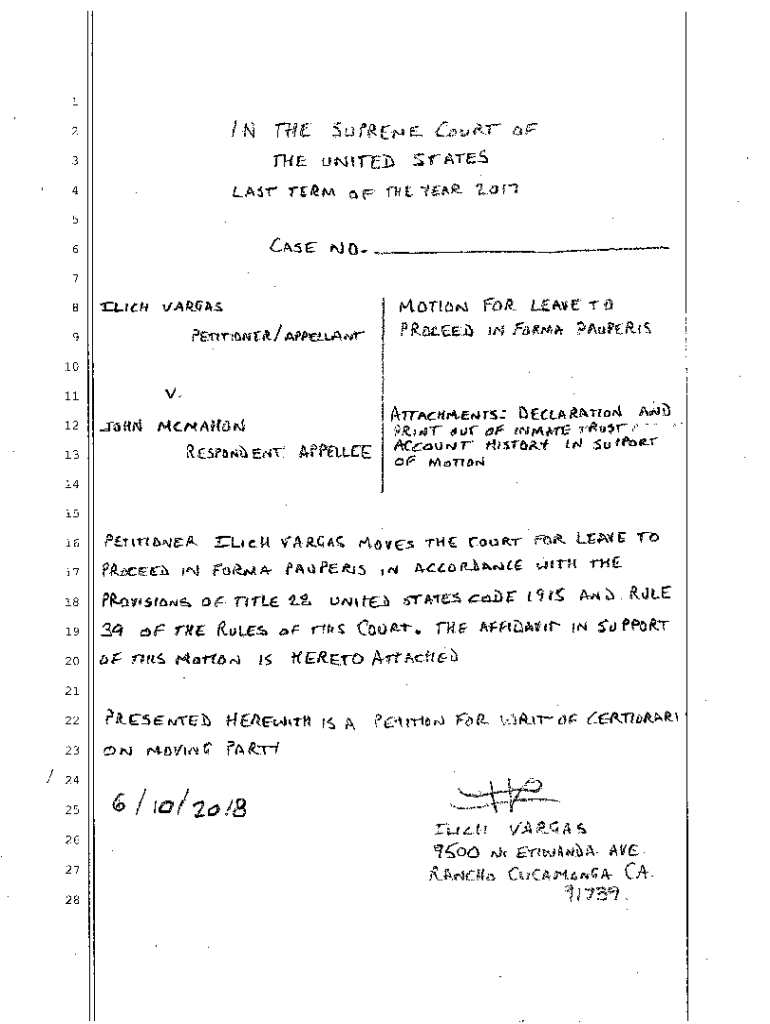 1
2 IN THE SUPREME COURT OF
3 THE UNITED STATES
4 LAST TERM OF THE YEAR 2017
5
6 CASE NO.
7
8 ILICH VARGAS MOTION FOR LEAVE TO
9 PETITIONER/APPELLANT PROCEED IN FORMA PAUPERIS
10
11 V.
12 JOHN MCMAHON ATTACHMENTS: DECLARATION AND
PRINT OUT OF INMATE TRUST
13 RESPONDENT APPELLEE ACCOUNT HISTORY IN SUPPORT
OF MOTION
14
15
16 PETITIONER ILICH VARGAS MOVES THE COURT FOR LEAVE TO
17 PROCEED IN FORMA PAUPERIS IN ACCORDANCE WITH THE
18 PROVISIONS OF TITLE 28 UNITED STATES CODE 1915 AND RULE
19 39 OF THE RULES OF THIS COURT. THE AFFIDAVIT IN SUPPORT
20 OF THIS MOTION IS HERETO ATTACHED
21
22 PRESENTED HEREWITH IS A PETITION FOR WRIT OF CERTIORARI
23 ON MOVING PARTY
24
25 6/10/2018
ILICH VARGAS
26 9500 N. ETIWANDA AVE.
27 RANCHO CUCAMONGA CA.
28 91739.